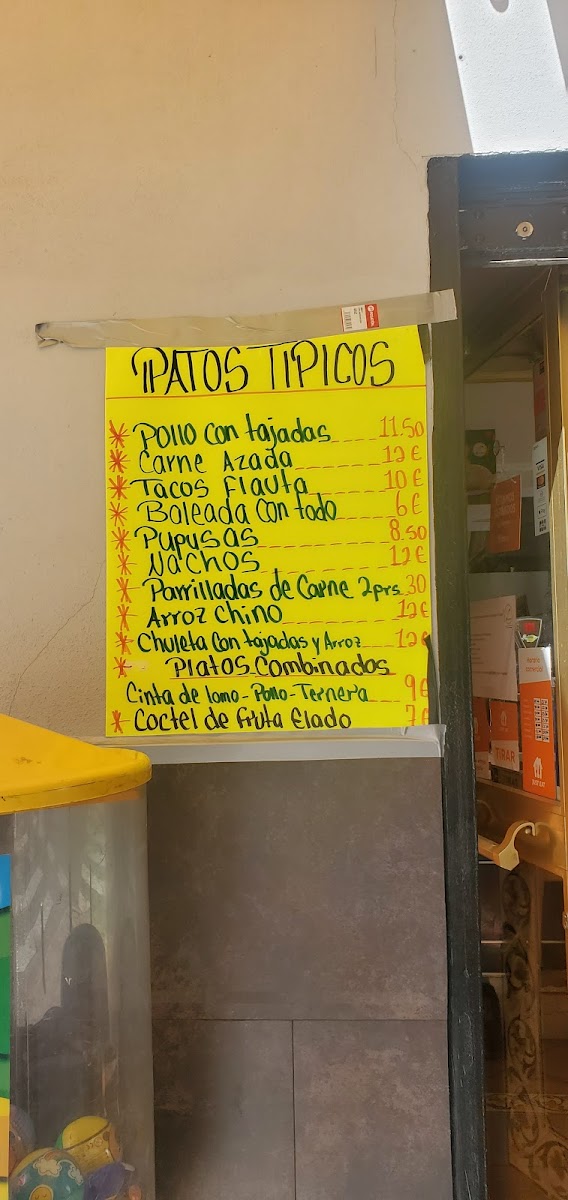 PATOS TIPICOS
* Pollo con tajadas 11.50
* Carne Azada 12 €
* Tacos Flauta 10 €
* Baleada con todo 6 €
* Pupusas 8.50
* Nachos 12 €
* Parrilladas de Carne 2prs 30
* Arroz chino 12 €
* Chuleta con tajadas y Arroz 12 €
* Platos Combinados
Cinta de lomo - Pollo - Ternera 9 €
* Coctel de fruta Elado 7 €
TIRAR